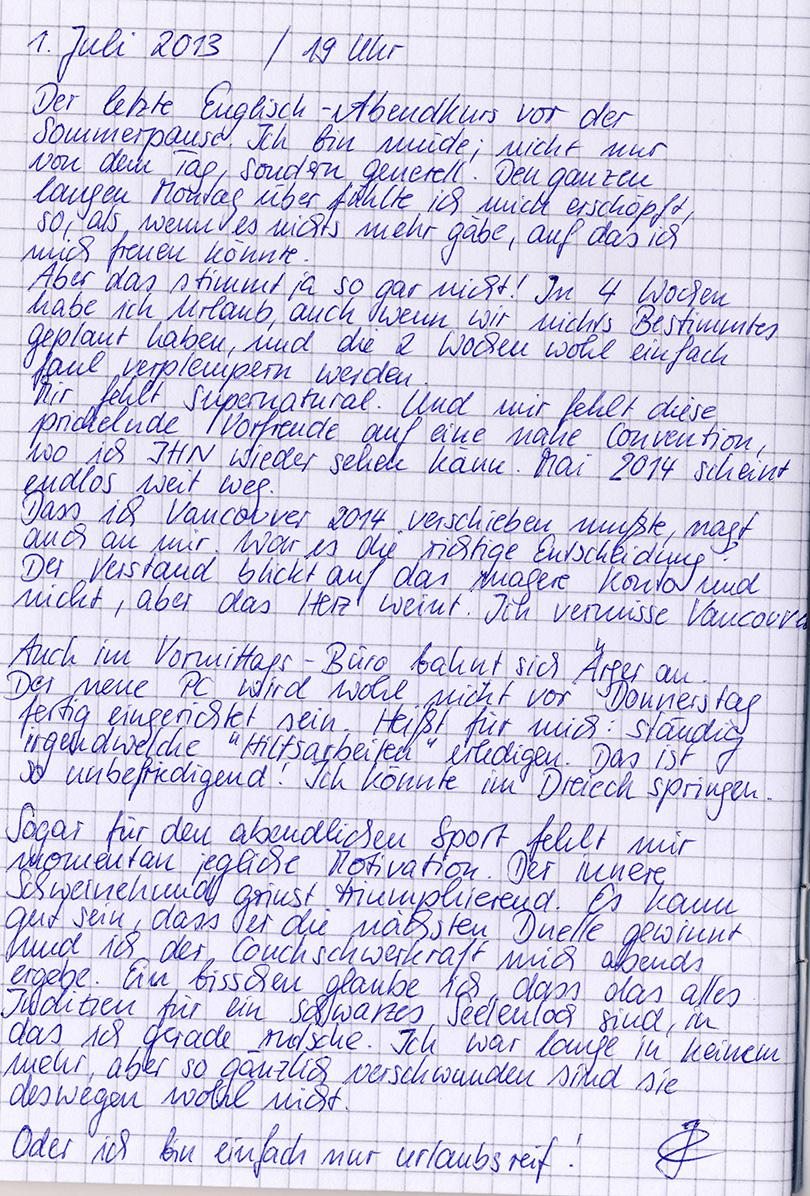 1. Juli 2013 / 19 Uhr
Der letzte Englisch-Abendkurs vor der
Sommerpause. Ich bin müde; nicht nur
von dem Tag, sondern generell. Den ganzen
langen Montag über fühlte ich mich erschöpft,
so, als wenn es nichts mehr gäbe, auf das ich
mich freuen könnte.
Aber das stimmt ja so gar nicht! In 4 Wochen
habe ich Urlaub, auch wenn wir nichts Bestimmtes
geplant haben, und die 2 Wochen wohl einfach
faul verplempern werden.
Mir fehlt Supernatural. Und mir fehlt diese
prickelnde Vorfreude auf eine nahe Convention,
wo ich IHN wieder sehen kann. Mai 2014 scheint
endlos weit weg.
Dass ich Vancouver 2014 verschieben musste, nagt
auch an mir. War es die richtige Entscheidung?
Der Verstand blickt auf das magere Konto und
nickt, aber das Herz weint. Ich vermisse Vancouver
Auch im Vormittags-Büro bahnt sich Ärger an.
Der neue PC wird wohl nicht vor Donnerstag
fertig eingerichtet sein. Heißt für mich: ständig
irgendwelche "Hilfsarbeiten" erledigen. Das ist
so unbefriedigend! Ich könnte im Dreieck springen.
Sogar für den abendlichen Sport fehlt mir
momentan jegliche Motivation. Der innere
Schweinehund grinst triumphierend. Es kann
gut sein, dass er die nächsten Duelle gewinnt
und ich der Couchschwerkraft mich abends
ergebe. Ein bisschen glaube ich, dass das alles
Indizien für ein schwarzes Seelenloch sind, in
das ich gerade rutsche. Ich war lange in keinem
mehr, aber so gänzlich verschwunden sind sie
deswegen wohl nicht.
Oder ich bin einfach nur urlaubsreif!